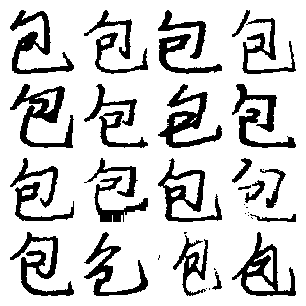 包包包包
包包包包
包包包包
包包包包